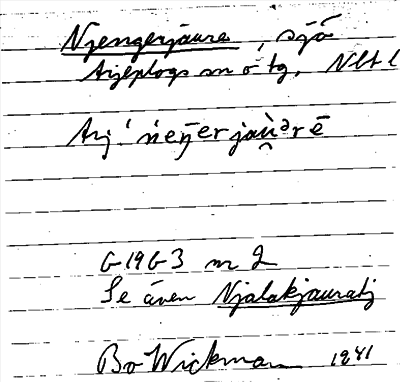 Njengerjaure, sjö
Arjeplogs sn o tg, Nbt l
Arj. ńeŋ̄er jau̯ərē
G 19 G 3 nr 2
Se även Njalakjauratj
Bo Wickman 1941